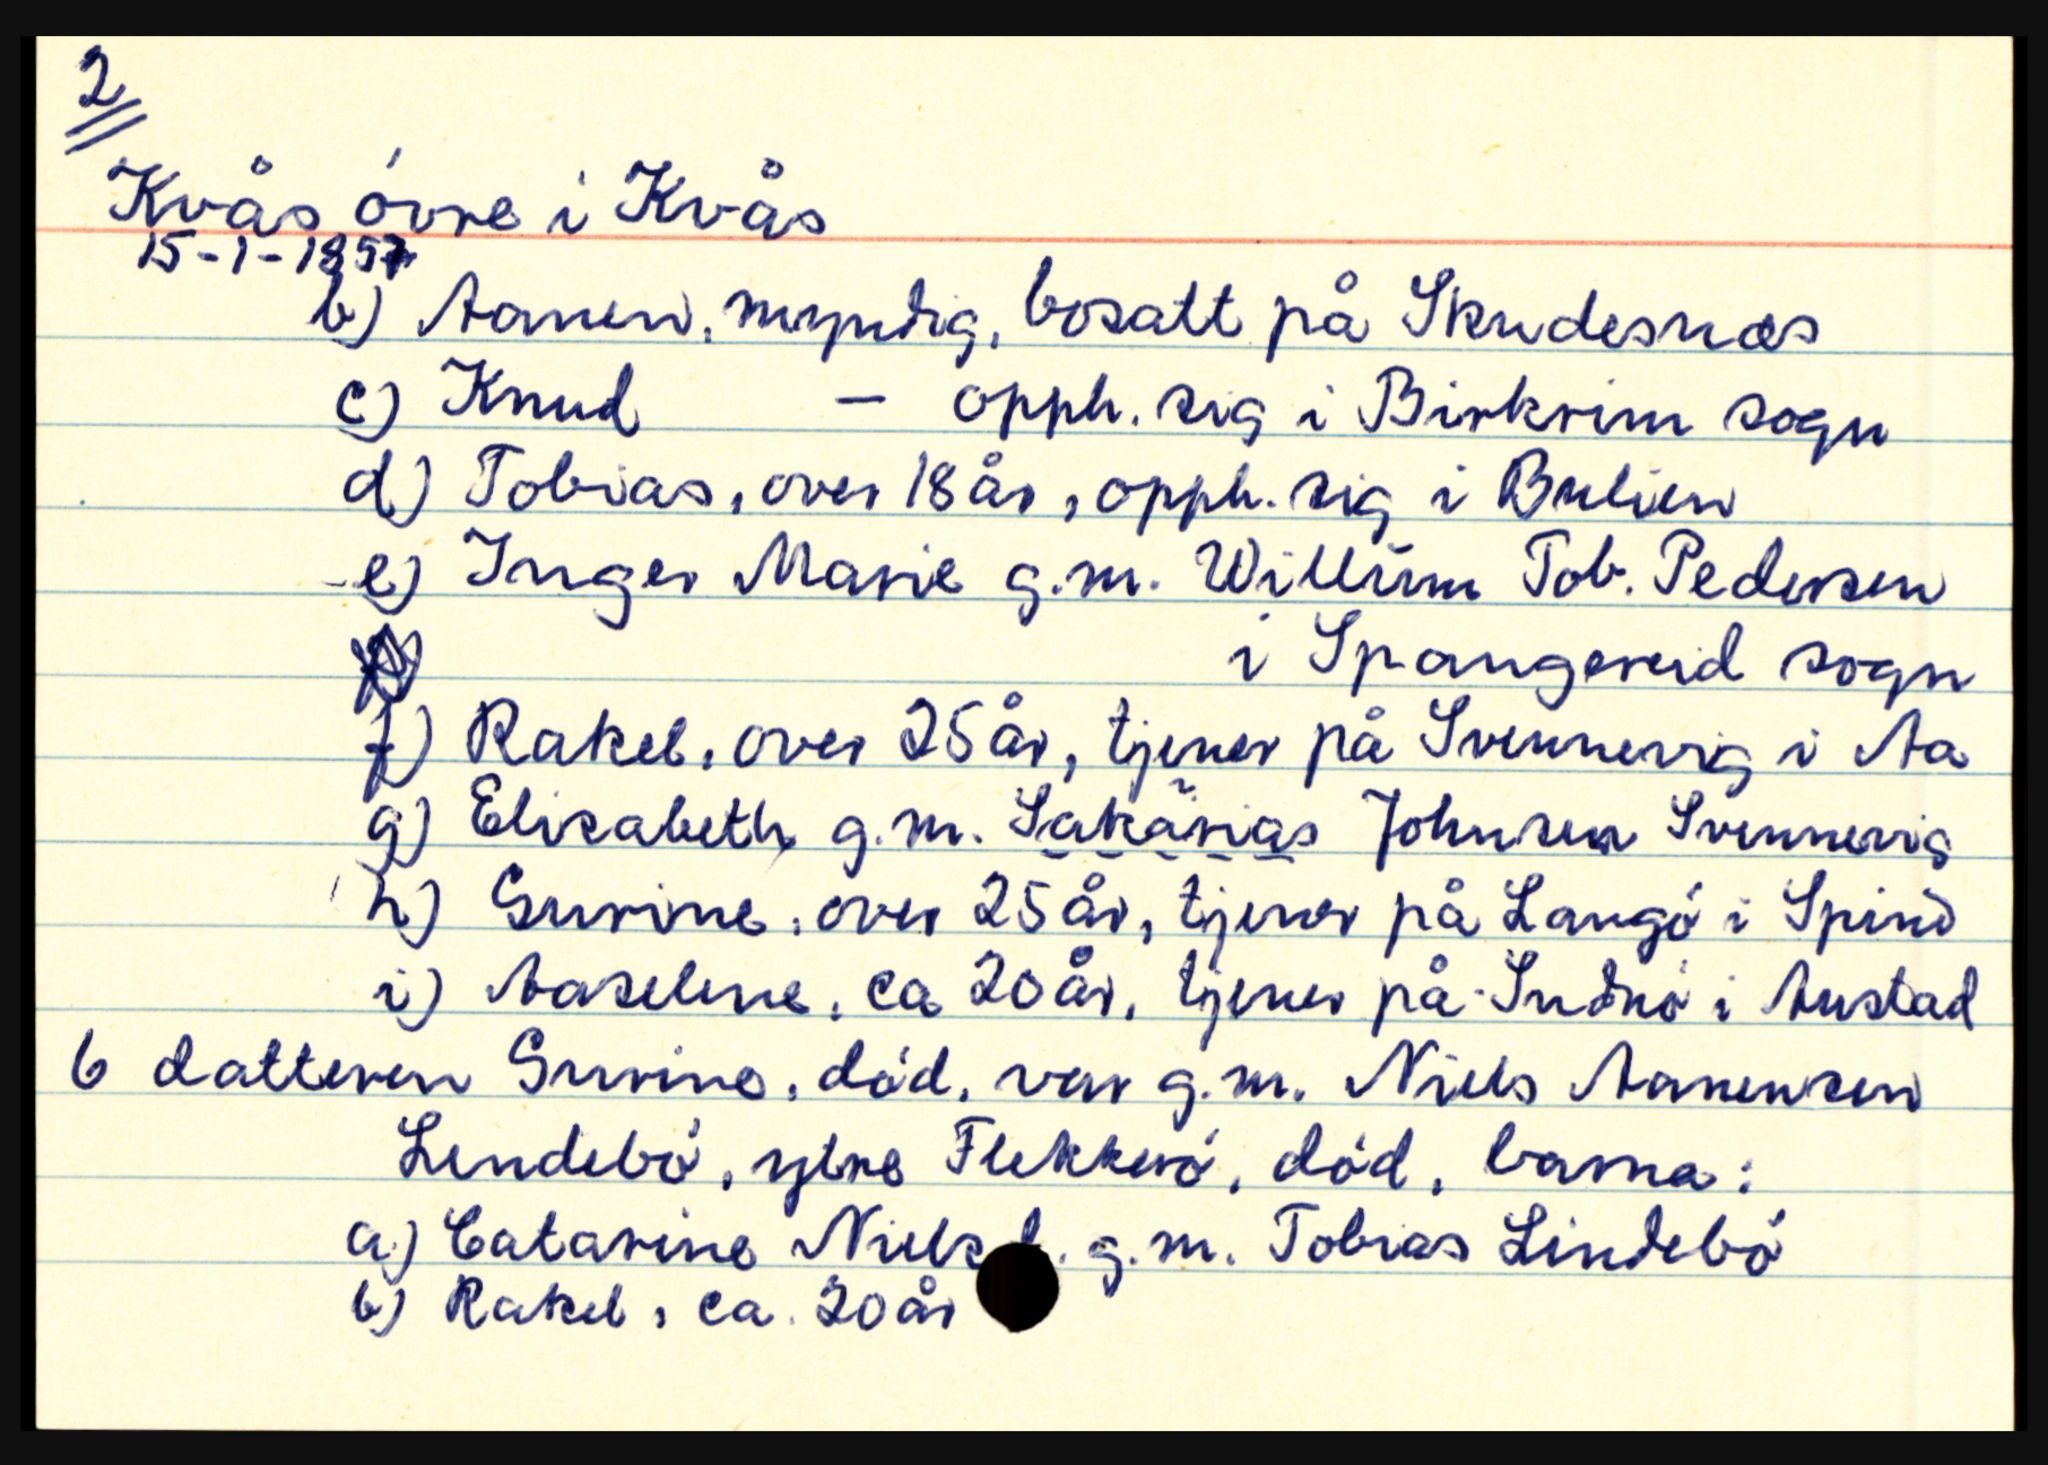 2
Kvås óvre i Kvås
15-1-1857
b) Aanen, myndig, bosatt på Skudesnæs
c) Knud — opph. sig i Birkrim sogn
d) Tobias, over 18 år, opph. sig i Bulien
e) Inger Marie g.m. Willum Tob. Pedersen
i Spangereid sogn
f) Rakel, over 25 år, tjener på Svennevig i Aa
g) Elisabeth g.m. Sakarias Johnsen Svennevig
h) Gurine, over 25 år, tjener på Langó i Spind
i) Aaselene, ca 20 år, tjener på i Austad
6 datteren Gurine, dód, var g.m. Niels Aanensen
Lendebó, ytre Flekkeró, dód, barna:
a) Catarine Niels d. g.m. Tobias Lindebó
b) Rakel, ca. 20 år